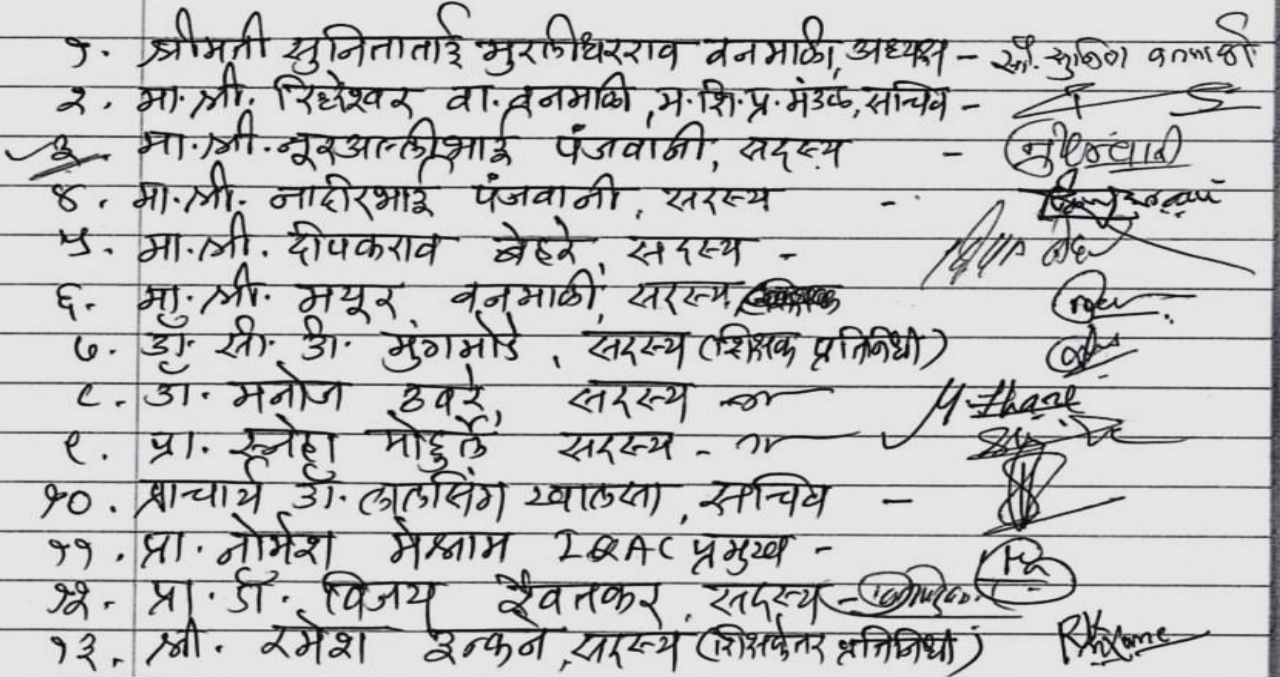 १. श्रीमती सुनिताताई मुरलीधरराव वनमाळी, अध्यक्ष - सौ. सुनिता वनमाळी
२. मा. श्री. रिध्देश्वर वा. वनमाळी, म. शि. प्र. मंडळ, सचिव -
३. मा. श्री. नूरअल्लीभाई पंजवानी, सदस्य -
४. मा. श्री. नादीरभाई पंजवानी, सदस्य -
५. मा. श्री. दीपकराव बेहरे, सदस्य -
६. मा. श्री. मयूर वनमाळी, सदस्य
७. डॉ. सी. डी. मुंगमोडे, सदस्य (शिक्षक प्रतिनिधी)
८. डॉ. मनोज ठवरे, सदस्य M. Thavre
९. प्रा. स्नेहा मोहुर्ले सदस्य -
१०. प्राचार्य डॉ. लालसिंग खालसा, सचिव -
११. प्रा. नोमेश मेश्राम IQAC प्रमुख -
१२. प्रा. डॉ. विजय रैवतकर, सदस्य -
१३. श्री. रमेश, सदस्य (शिक्षकेतर प्रतिनिधी)